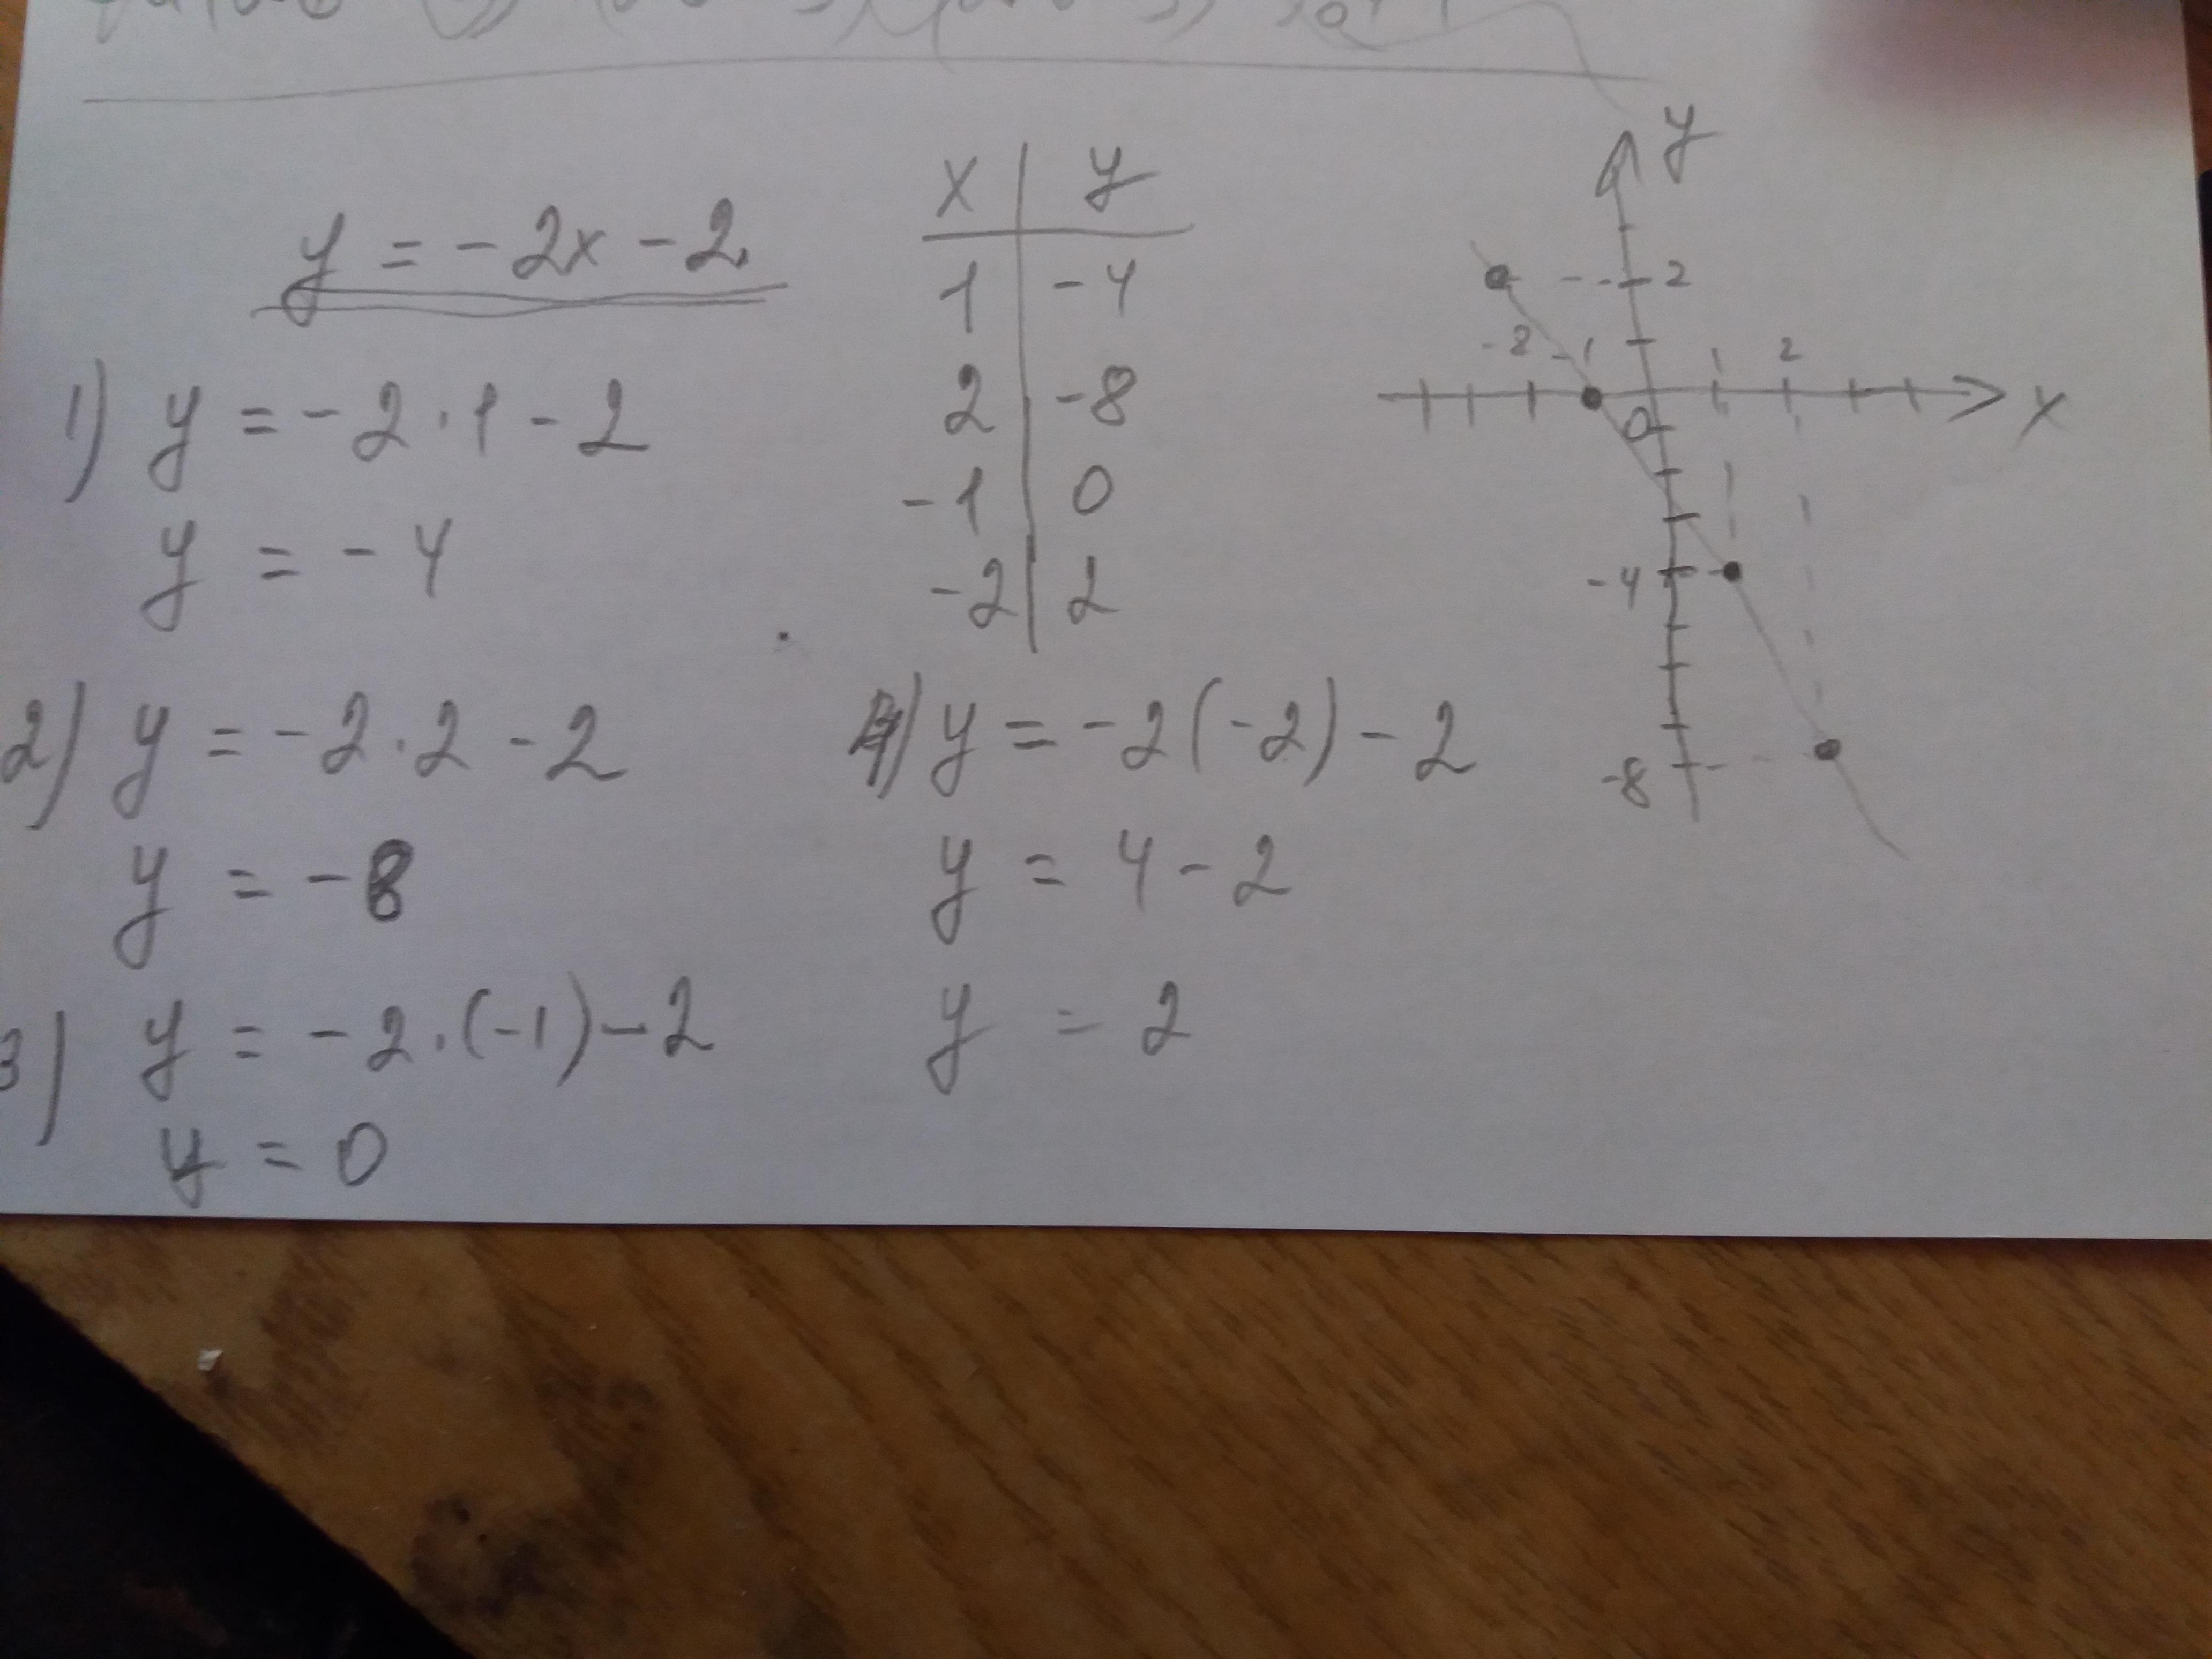 y = -2x - 2
1) y = -2 · 1 - 2
y = -4
2) y = -2 · 2 - 2
y = -8
3) y = -2 · (-1) - 2
y = 0
x | y
1 | -4
2 | -8
-1 | 0
-2 | 2
4) y = -2(-2) - 2
y = 4 - 2
y = 2
y
2
-2 -1 1 2
0 x
-4
-8